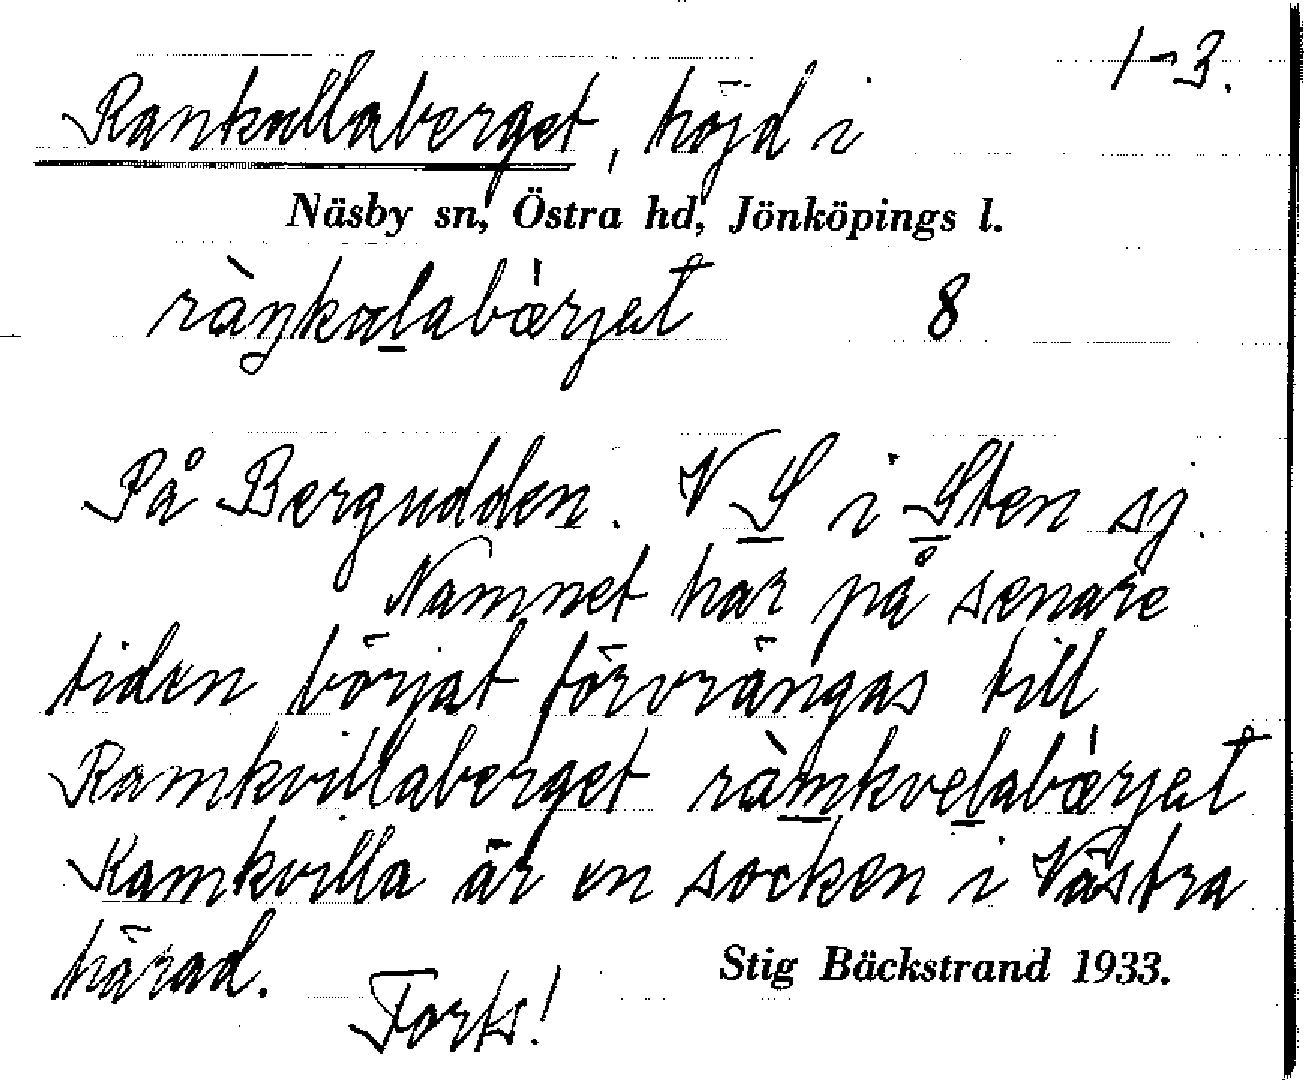 1-3.
Rankallaberget, höjd i
Näsby sn, Östra hd, Jönköpings l.
ràŋkalabærjet 8
På Bergudden. V S i Sten sj.
Namnet har på senare
tiden börjat förvrängas till
Ramkvillaberget ràmkvelabærjet
Ramkvilla är en socken i Västra
härad.
Stig Bäckstrand 1933.
Forts!